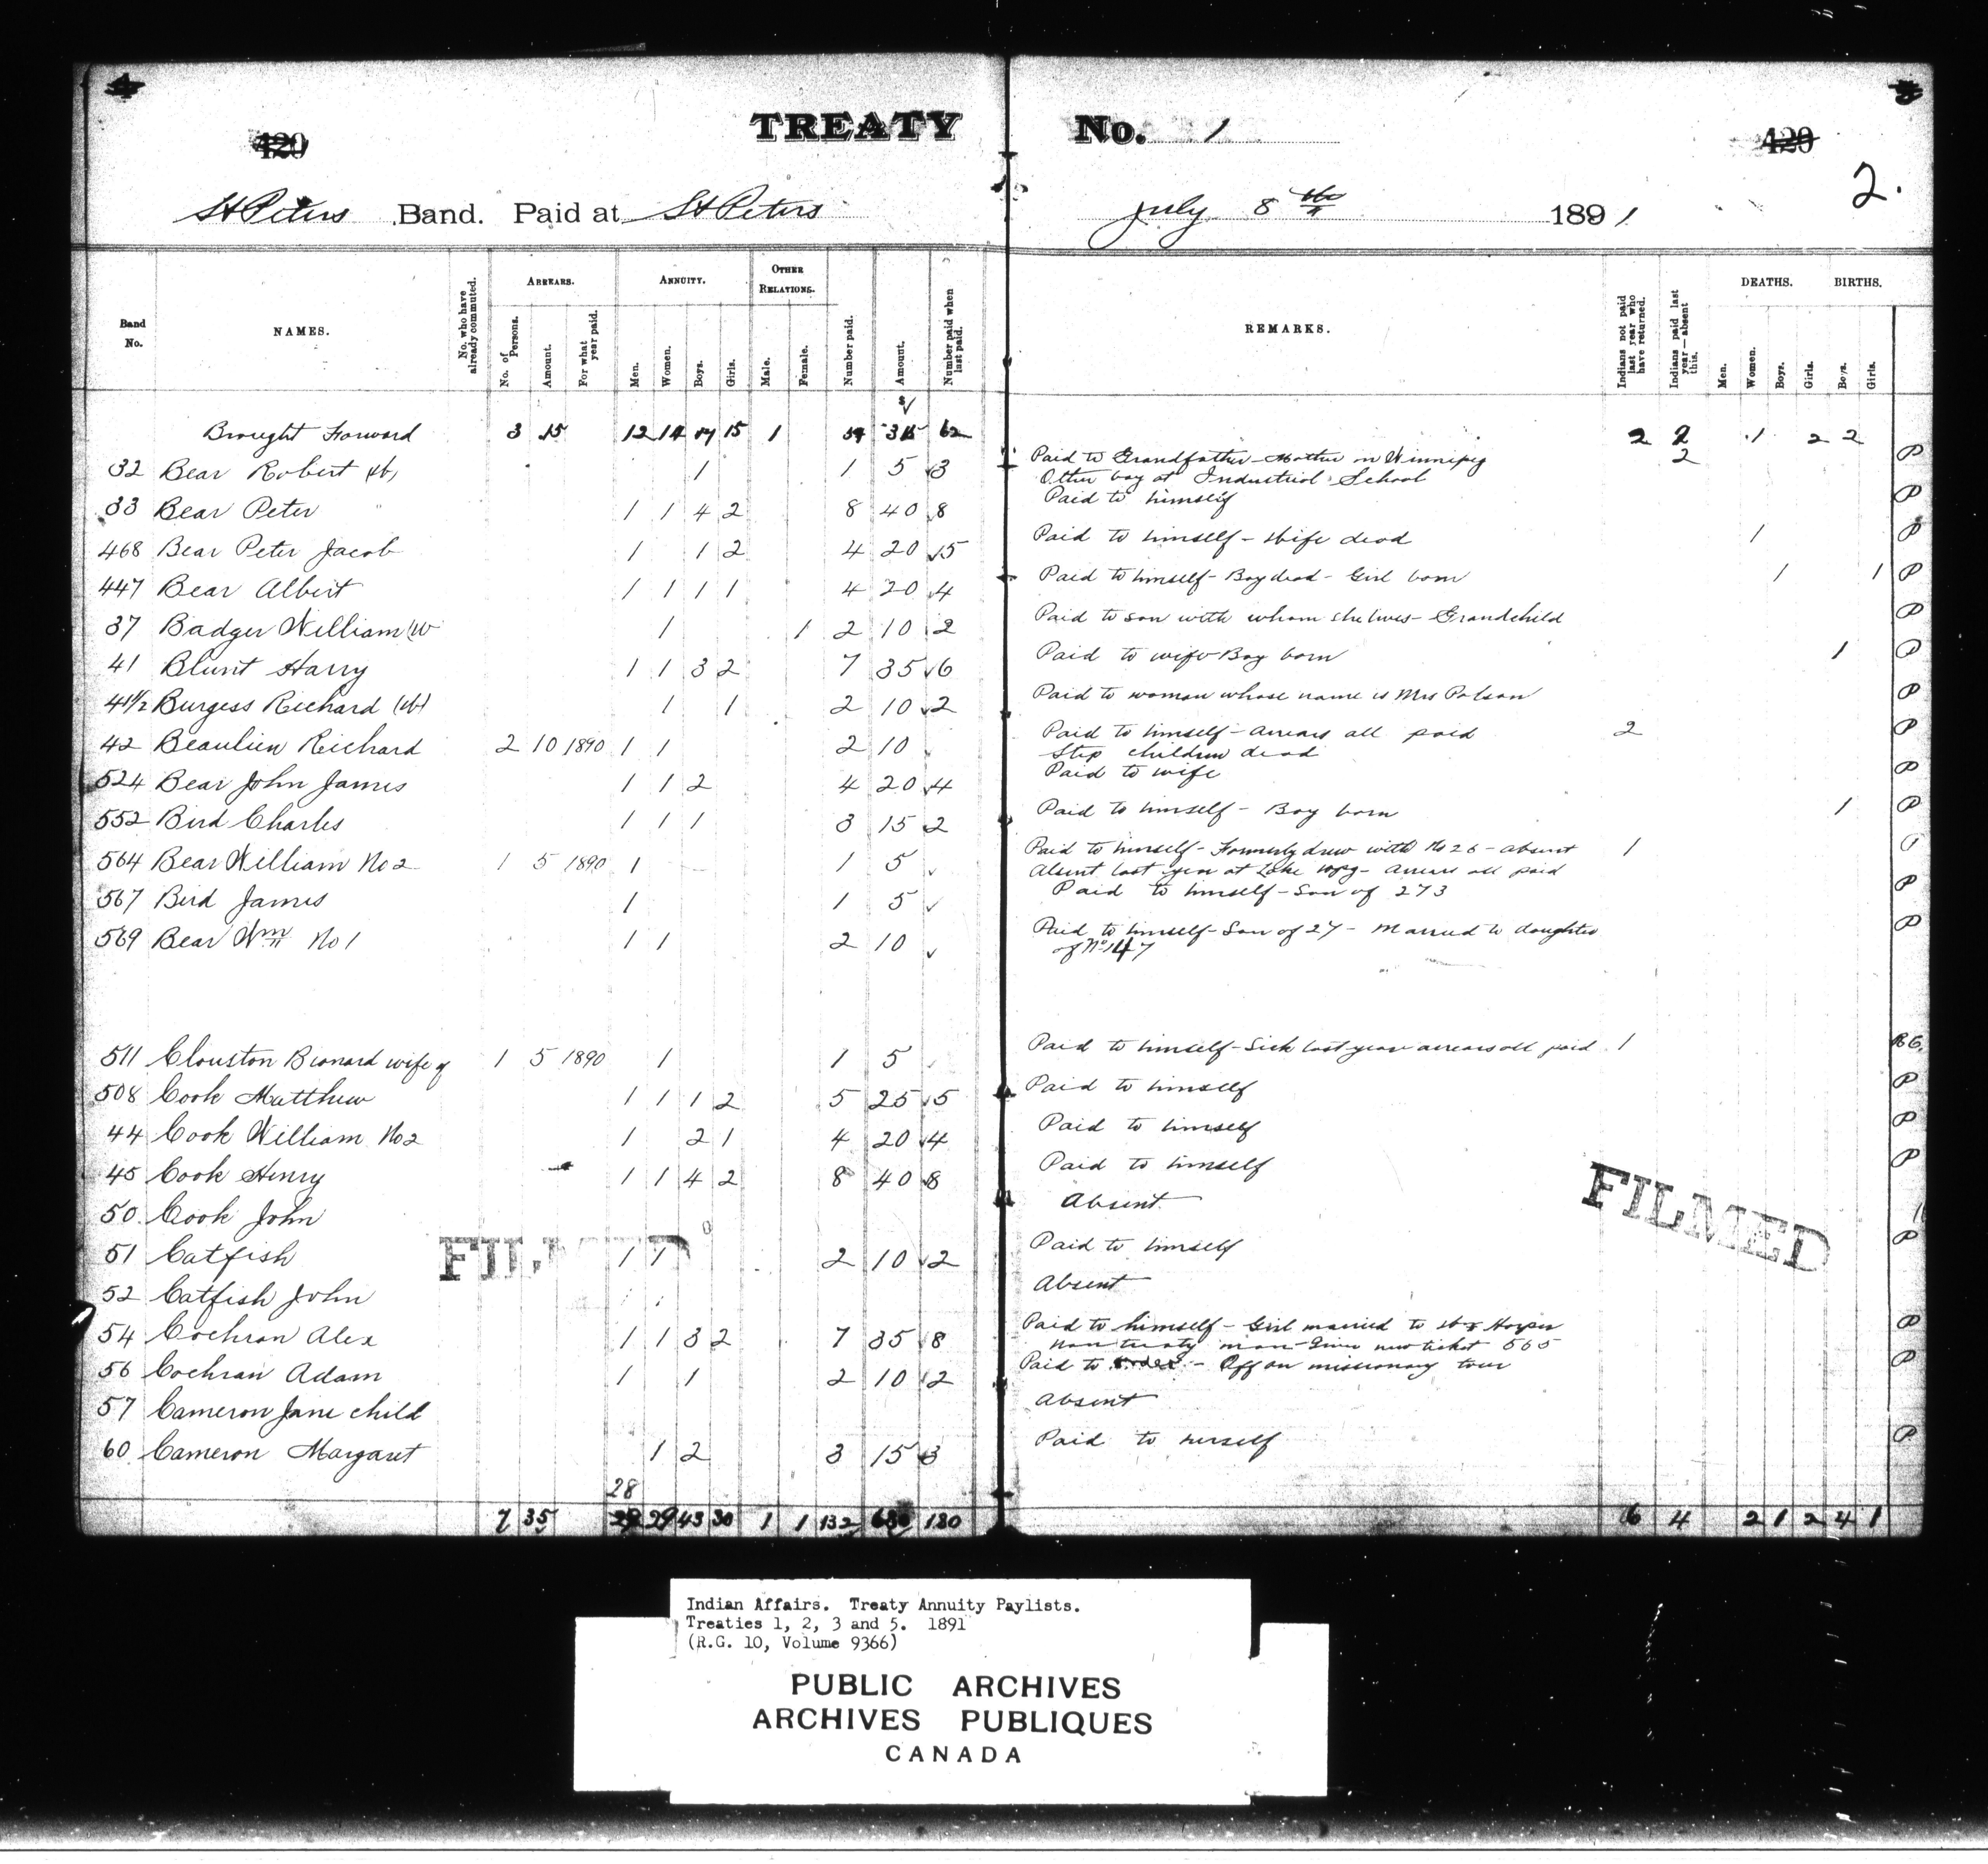 TREATY No. 1
420 420
2.
St Peters Band. Paid at St Peters July 8th 1891
Band No. NAMES. No. who have already commuted. ARREARS. No. of Persons. Amount. For what year paid. ANNUITY. Men. Women. Boys. Girls. OTHER RELATIONS. Male. Female. Number paid. Amount. Number paid when last paid. REMARKS. Indians not paid last year who have returned. Indians paid last year—absent this. DEATHS. Men. Women. Boys. Girls. BIRTHS. Boys. Girls.
Brought Forward 3 15 12 14 15 1 62 2 2 1 2 2
32 Bear Robert 1 1 5 3 Paid to Grandfather - Mother in Winnipeg 2 P
Other boy at Industrial School
33 Bear Peter 1 1 4 2 8 40 8 Paid to himself P
468 Bear Peter Jacob 1 1 2 4 20 5 Paid to himself - Wife dead 1 P
447 Bear Albert 1 1 1 1 4 20 4 Paid to himself - Boy dead - Girl born 1 1 P
37 Badger William (W 1 1 2 10 2 Paid to son with whom she lives - Grandchild P
41 Blunt Harry 1 1 3 2 7 35 6 Paid to wife Boy born 1 P
41½ Burgess Richard (W) 1 1 2 10 2 Paid to woman whose name is Mrs Polson P
42 Beaulieu Richard 2 10 1890 1 1 2 10 Paid to himself - arrears all paid 2 P
Step children dead
524 Bear John James 1 1 2 4 20 4 Paid to wife P
552 Bird Charles 1 1 1 3 15 2 Paid to himself - Boy born 1 P
564 Bear William No 2 1 5 1890 1 1 5 Paid to himself - Formerly drew with No 26 - absent 1
Absent last year at Lake Wpg - arrears all paid
567 Bird James 1 1 5 Paid to himself - Son of 273 P
569 Bear Wm No 1 1 1 2 10 Paid to himself - Son of 27 - Married to daughter P
of No 147
511 Clouston Bionard wife of 1 5 1890 1 1 5 Paid to himself - Sick last year arrears all paid 1
508 Cook Matthew 1 1 1 2 5 25 5 Paid to himself P
44 Cook William No 2 1 2 1 4 20 4 Paid to himself P
45 Cook Henry 1 1 4 2 8 40 8 Paid to himself P
50 Cook John Absent
51 Catfish 1 1 2 10 2 Paid to himself P
52 Catfish John Absent
54 Cochran Alex 1 1 3 2 7 35 8 Paid to himself - Girl married to Harper P
non treaty man - Given new ticket 565
56 Cochran Adam 1 1 2 10 2 Paid to - Off on missionary tour P
57 Cameron Jane child Absent
60 Cameron Margaret 1 2 3 15 3 Paid to herself P
28
7 35 29 43 30 1 1 132 180 6 4 2 1 2 4 1
FILMED
FILMED
Indian Affairs. Treaty Annuity Paylists.
Treaties 1, 2, 3 and 5. 1891
(R.G. 10, Volume 9366)
PUBLIC ARCHIVES
ARCHIVES PUBLIQUES
CANADA